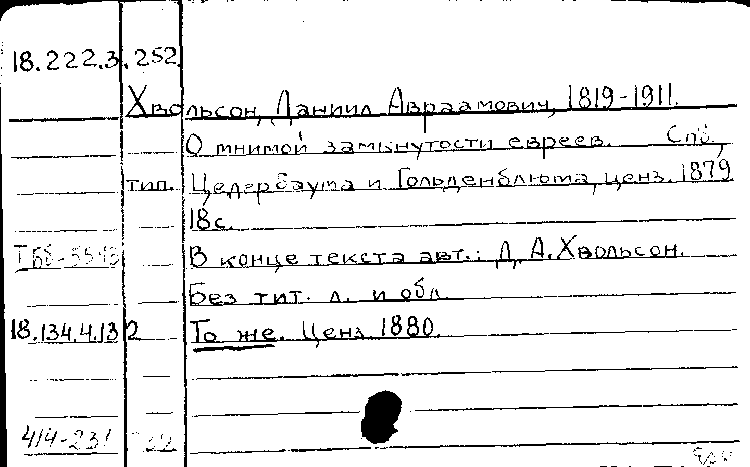 18.222.3.252
Хвольсон, Даниил Авраамович, 1819-1911.
О мнимой замкнутости евреев. Спб,
тип. Цедербаума и Гольденблюма, ценз. 1879
18 с.
В конце текста авт.: Д. А. Хвольсон.
Без тит. л. и обл.
18.134.4.132 То же. Ценз 1880.